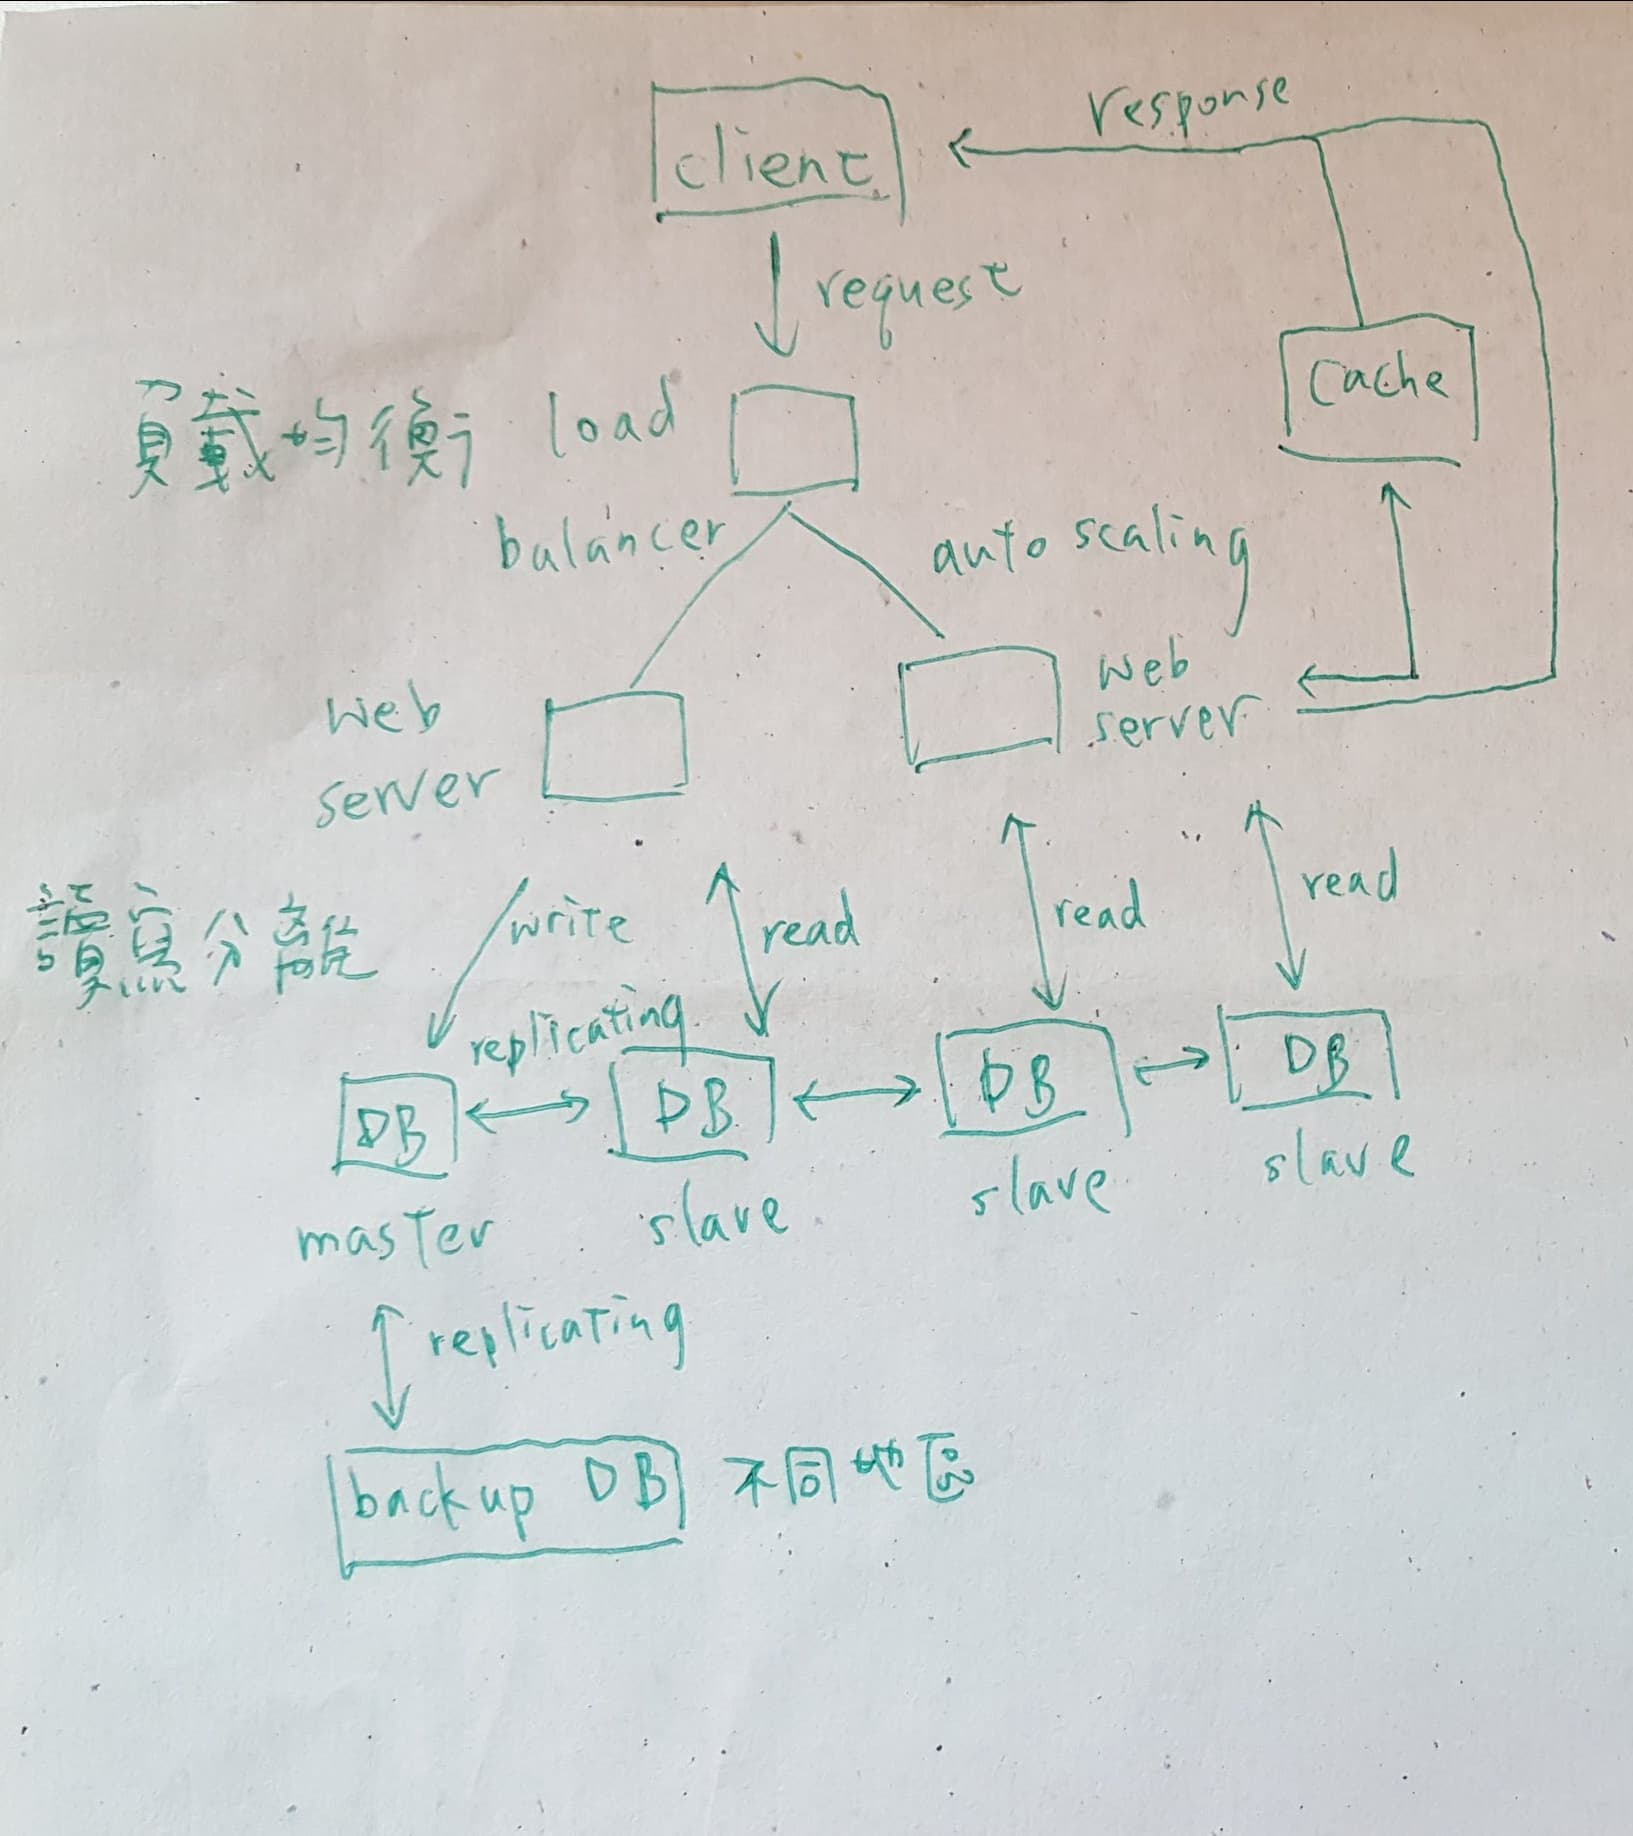 response
client
request
cache
負載均衡 load
balancer
auto scaling
web
server
web
server
讀寫分離
write
read
read
read
replicating
DB
DB
DB
DB
master
slave
slave
slave
replicating
backup DB 不同地區